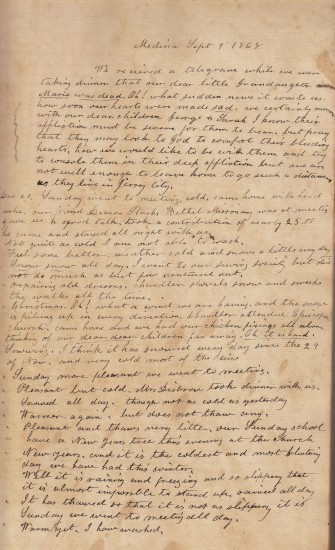 Medina Sept 9 1868
We received a telegram while we were
taking dinner that our dear little Grandaughter
Marie was dead Oh! what sudden news it was to us
how soon our hearts were made sad. we certainly mourn
with our dear children George & Sarah I know their
affliction must be severe for them to bear, but pray
that they may look to God to comfort their bleeding
hearts, how we would like to be with them and try
to console them in their deep affliction but we are
not well enough to leave home to go such a distance
as they live in Jersey City.
Sunday went to meeting, cold, came home with
our friend Bethel was at meeting
gave us a good talk, took a contribution of nearly 25.00
he came and stayed all night with us,
not quite as cold I am not able to wash.
Feel some better, weather cold and snows a little every day
Snow snow all day. I went to our sewing society, but did
not do much as but few ventured out,
repairing old dresses, Chandler shovels snow and sweeps
the walks all the time.
Christmas Oh! what a winter we are having, and the snow
is piling up in every direction Chandler attended Episcopal
Church. came home and we had our chicken fixings all alone,
thinking of our dear dear children far away.
Snowing, I think it has snowed every day since the 29
of Nov. and very cold most of the time
Sunday more pleasant we went to meeting.
Pleasant but cold, Mrs took dinner with us.
Snowed all day. though not as cold as yesterday
Warmer again. but does not thaw any.
Pleasant and thaws very little, our Sunday school
have a New Years tree this evening at the Church
New years, and it is the coldest and most blustering
day we have had this winter.
Well it is raining and freezing and so slippery that
it is almost impossible to stand up, rained all day
It has thawed so that it is not as slippery, it is
Sunday we went to meeting all day.
Warm yet, I have washed,